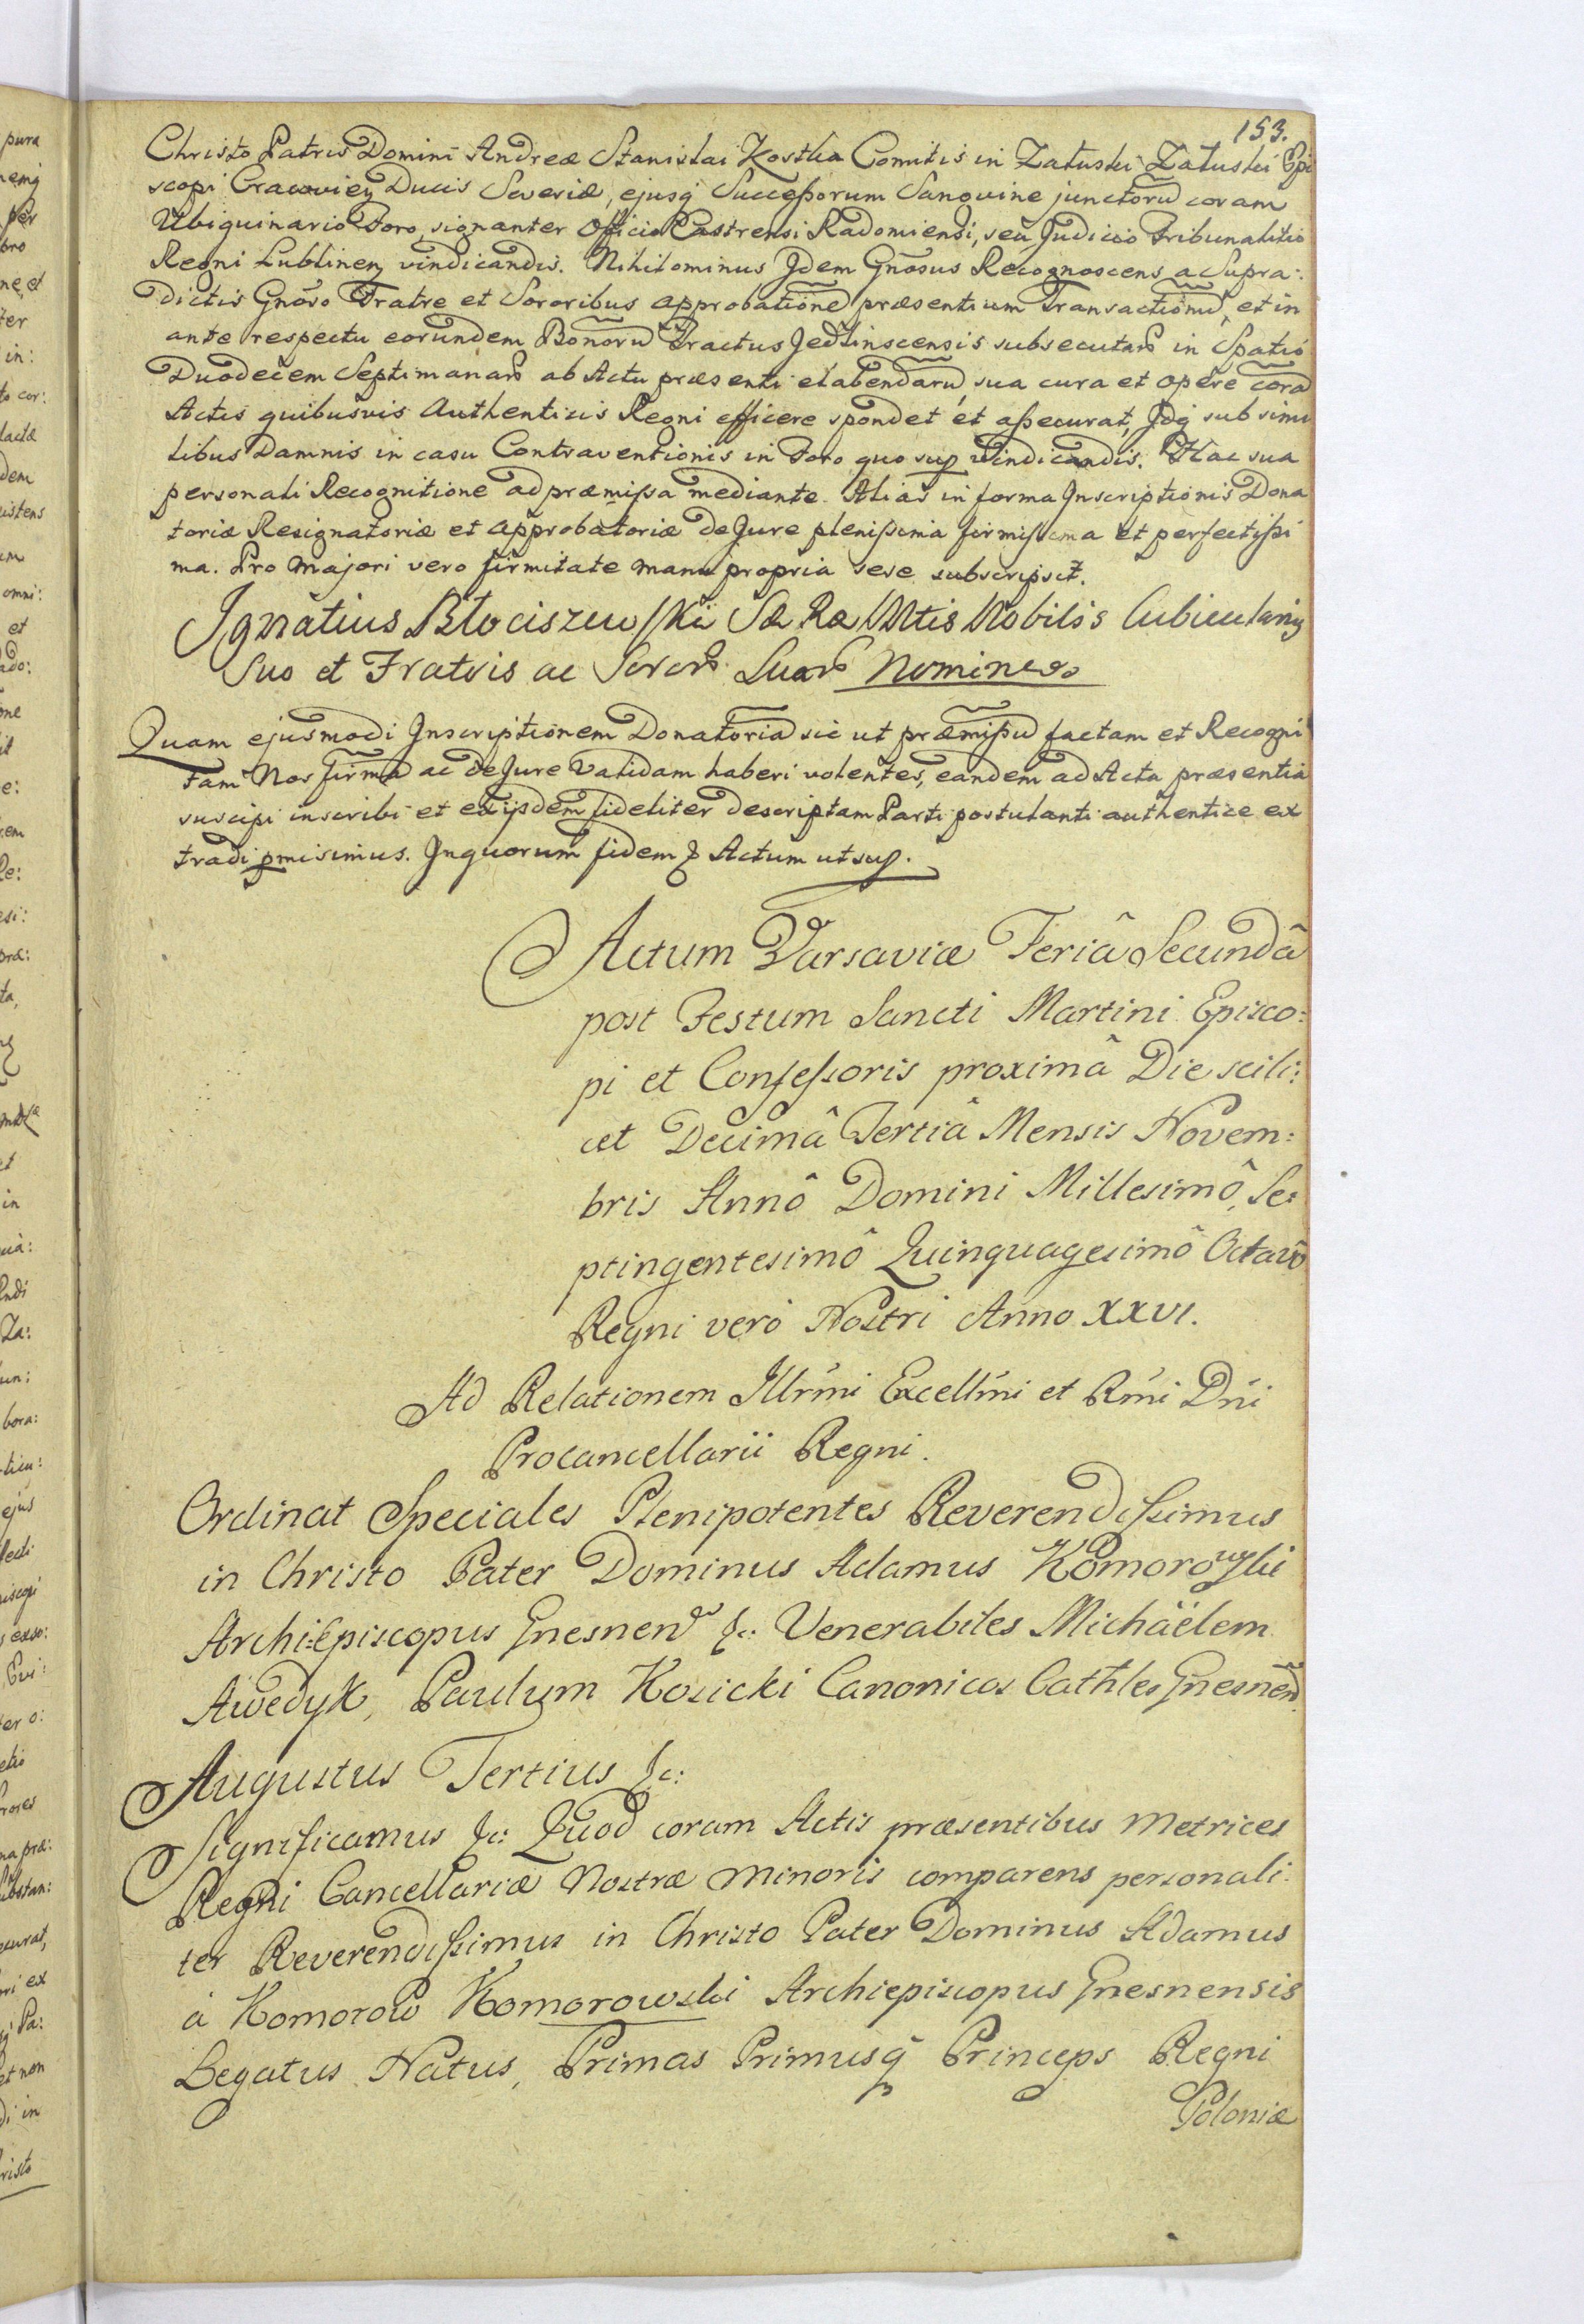 153.
Christo Patris Domini Andreæ Stanislai Kostka Comitis in Załuskie Załuski Epi
scopi Cracovien Ducis Severiæ, ejusq Successorum Sangvine junctorũ coram
Ubiquinario Foro, signanter Officio Castrensi Radomiensi, seu Judicio Tribunalitio
Regni Lublinen vindicandis. Nihilominus Jdem Gnõsus Recognoscens a Supra:
dictis Gnõso Fratre et Sororibus approbatione præsentium Transactionũ, et in
ante respectu eorundem Bonorũ Tractus Jedlinscensis subsecutars in Spatio
Duodecem Septimanars ab Actu præsenti elabendarũ, sua cura et opere corã
Actis quibusvis Authenticis Regni efficere spondet et assecurat, Jdq sub simi
libus Damnis in casu Contraventionis in Foro quo sup vindicandis. Hac sua
personali Recognitione ad præmissa mediante. Alias in forma Jnscriptionis Dona
toriæ Resignatoriæ et approbatoriæ de Jure plenissima firmissima et perfectissi
ma. Pro majori vero firmitate manu propria sese subscripsit.
Jgnatius Błociszewski Sæ Ræ Mtis Nobilis Cubicularius
Suo et Fratris ac Soror Suar Nomine
Quam ejusmodi Jnscriptionem Donatoriã sic ut præmissũ factam et Recogni
tam Nos firmã ac de Jure validam haberi volentes, eandem ad Acta præsentia
suscipi inscribi et ex ijsdem fideliter descriptam Parti postulanti authentice ex
tradi pmisimus. Jnquorum fidem & Actum ut sup.
Actum Varsaviæ Feriâ Secundâ
post Festum Sancti Martini Episco:
pi et Confessoris proximâ Die scili:
cet Decimâ Tertiâ Mensis Novem:
bris Annô Domini Millesimô, Se:
ptingentesimô Quinquagesimô Octavô
Regni verò Nostri Anno XXVI.
Ad Relationem Jllrmi Excellmi et Rmi Dni
Procancellarii Regni.
Ordinat Speciales Plenipotentes Reverendissimus
in Christo Pater Dominus Adamus Komorowski
Archi:Episcopus Gnesnen &c: Venerabiles Michäelem
Awedyk, Paulum Kosicki Canonicos Cathles Gnesnen.
Augustus Tertius &c:
Significamus &c: Quod coram Actis præsentibus Metrices
Regni Cancellariæ Nostræ Minoris comparens personali:
ter Reverendissimus in Christo Pater Dominus Adamus
à Komorow Komorowski Archiepiscopus Gnesnensis
Legatus Natus, Primas Primusq Princeps Regni
Poloniæ